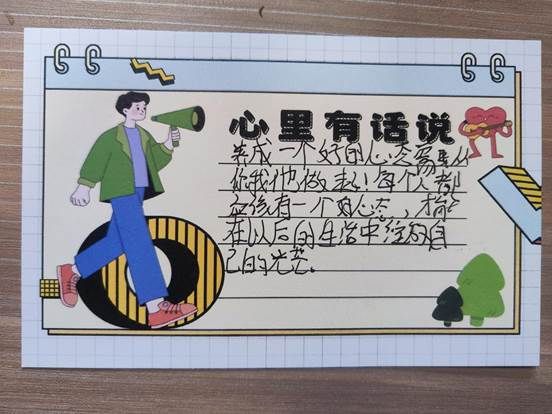 心里有话说
养成一个好的心态需要从
你我他做起！每个人都
应该有一个好心态，才能
在以后的生活中绽放自
己的光芒。